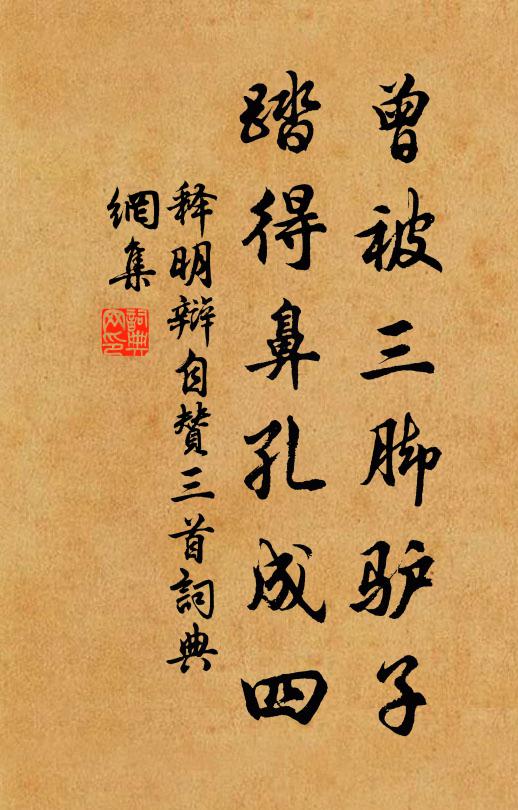 曾被三脚驴子
踏得鼻孔成四
释明辩自赞三首詞典
網集
詞典
文印